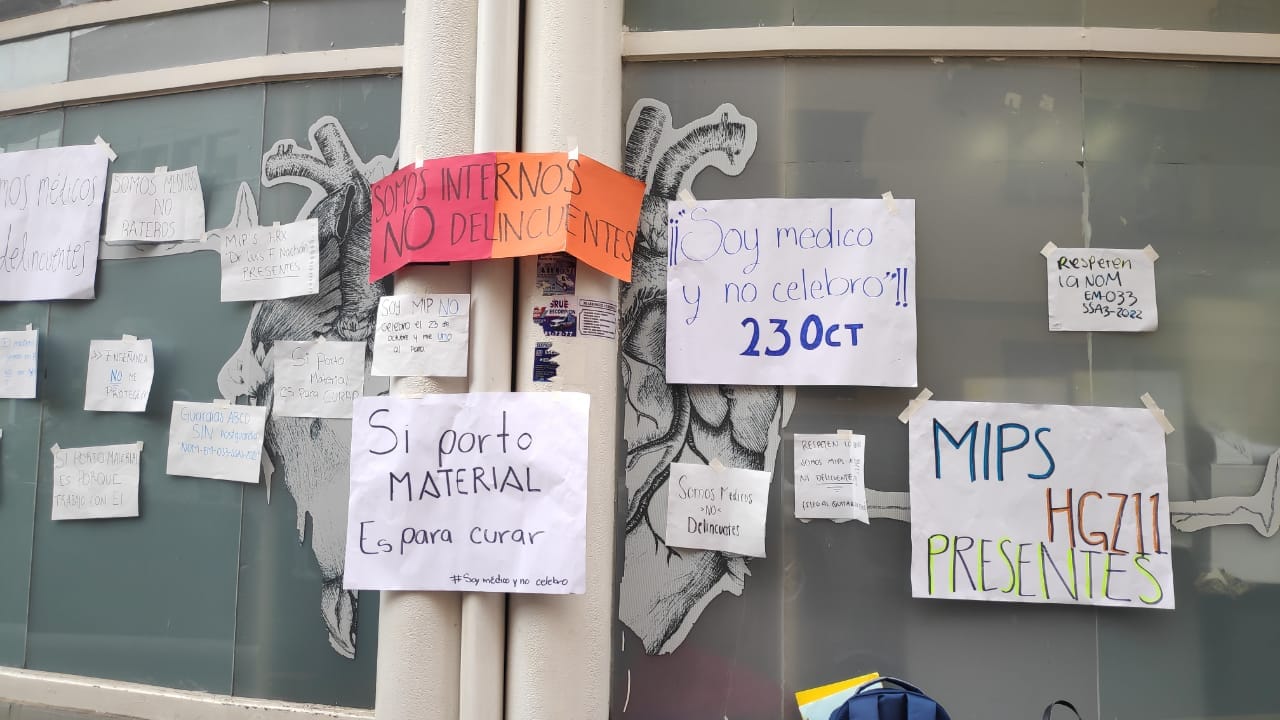 mos médicos
delincuentes
SOMOS MEDICOS
NO
RATEROS
MIP'S
PRESENTES
>> ENSEÑANZA
NO ME
PROTEGE
Guardias ABCD
SIN Postguardia
SI PORTO MATERIAL
ES PORQUE
TRABAJO CON EL
Si porto
Material
es para CURAR
SOMOS INTERNOS
NO DELINCUENTES
SOY MIP NO
celebro el 23 de
octubre y me uno
al paro.
Si porto
MATERIAL
Es para curar
#Soy médico y no celebro
¡¡"Soy medico
y no celebro"!!
23 Oct
Somos Medicos
>NO<
Delincuentes
SOMOS MIPS
NI DELINCUENTES
Respeten
la NOM
EM-033
SSA3-2022
MIPS
HGZ11
PRESENTES